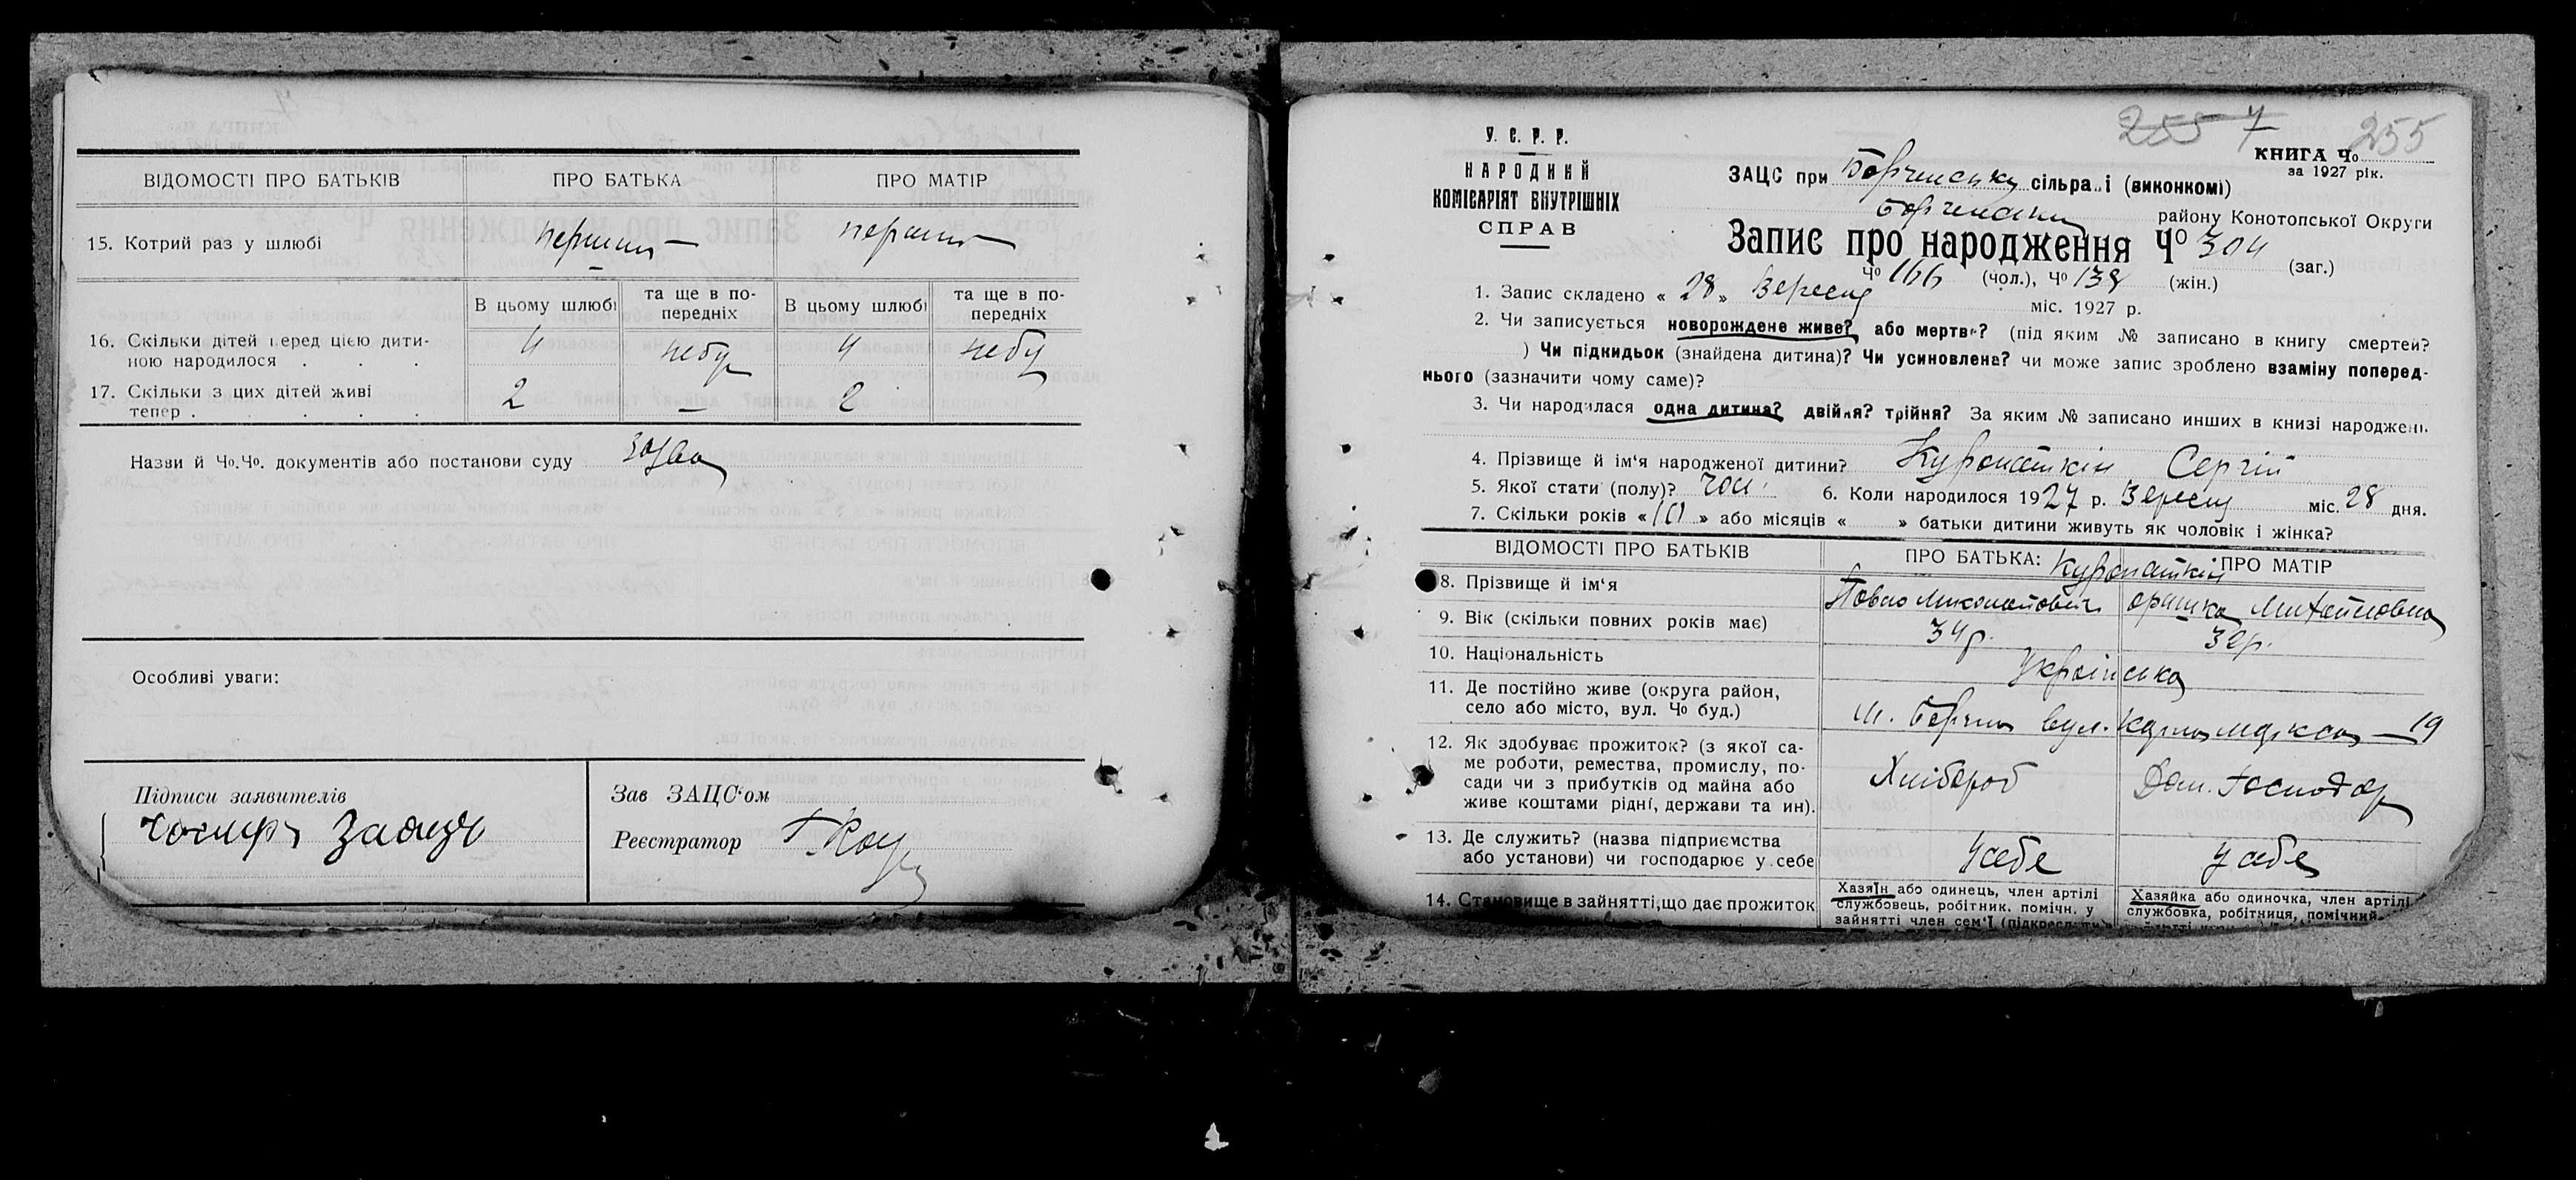 ВІДОМОСТІ ПРО БАТЬКІВ ПРО БАТЬКА ПРО МАТІР
15. Котрий раз у шлюбі перший перший
В цьому шлюбі та ще в по- В цьому шлюбі та ще в по-
передніх передніх
16. Скільки дітей перед цією дити-
ною народилося . . . 4 небу 4 небу
17. Скільки з цих дітей живі
тепер . . . . . 2 — 2
Назви й Чо.Чо. документів або постанови суду заява
Особливі уваги:
Підписи заявителів
Заяць
Зав ЗАЦС'ом
Реєстратор
255 7 255
У. С. Р. Р.
НАРОДНИЙ
КОМІСАРІЯТ ВНУТРІШНІХ
СПРАВ
КНИГА Чо
за 1927 рік.
ЗАЦС при Борзенську сільраді (виконкомі)
Борзенськ району Конотопської Округи
Запис про народження Чо 304 (заг.)
Чо 166 (чол.), Чо 138 (жін.)
1. Запис складено « 28 » Вересня міс. 1927 р.
2. Чи записується новорождене живе? або мертве? (під яким № записано в книгу смертей?
) Чи підкидьок (знайдена дитина)? Чи усиновлена? чи може запис зроблено взаміну поперед-
нього (зазначити чому саме)?
3. Чи народилася одна дитина? двійня? трійня? За яким № записано инших в книзі народжень
4. Прізвище й ім'я народженої дитини? Куропаткін Сергій
5. Якої стати (полу)? чол. 6. Коли народилося 1927 р. Вересня міс. 28 дня.
7. Скільки років « 10 » або місяців « » батьки дитини живуть як чоловік і жінка?
ВІДОМОСТІ ПРО БАТЬКІВ ПРО БАТЬКА: ПРО МАТІР
Куропаткін
8. Прізвище й ім'я Павло Миколайович оришка Михайловна
9. Вік (скільки повних років має) 34 р. 32 р.
10. Національність Українська
11. Де постійно живе (округа район,
село або місто, вул. Чо буд.) м. Борзна вул. Карла маркса — 19
12. Як здобуває прожиток? (з якої са-
ме роботи, ремества, промислу, по-
сади чи з прибутків од майна або
живе коштами рідні, держави та ин). Хлібороб Дом. Господар
13. Де служить? (назва підприємства
або установи) чи господарює у себе у себе у себе
14. Становище в зайнятті,що дає прожиток
Хазяїн або одинець, член артілі
службовець, робітник. помічн. у
зайнятті член сем'ї (підкреслити
Хазяйка або одиночка, член артілі
службовка, робітниця, помічний